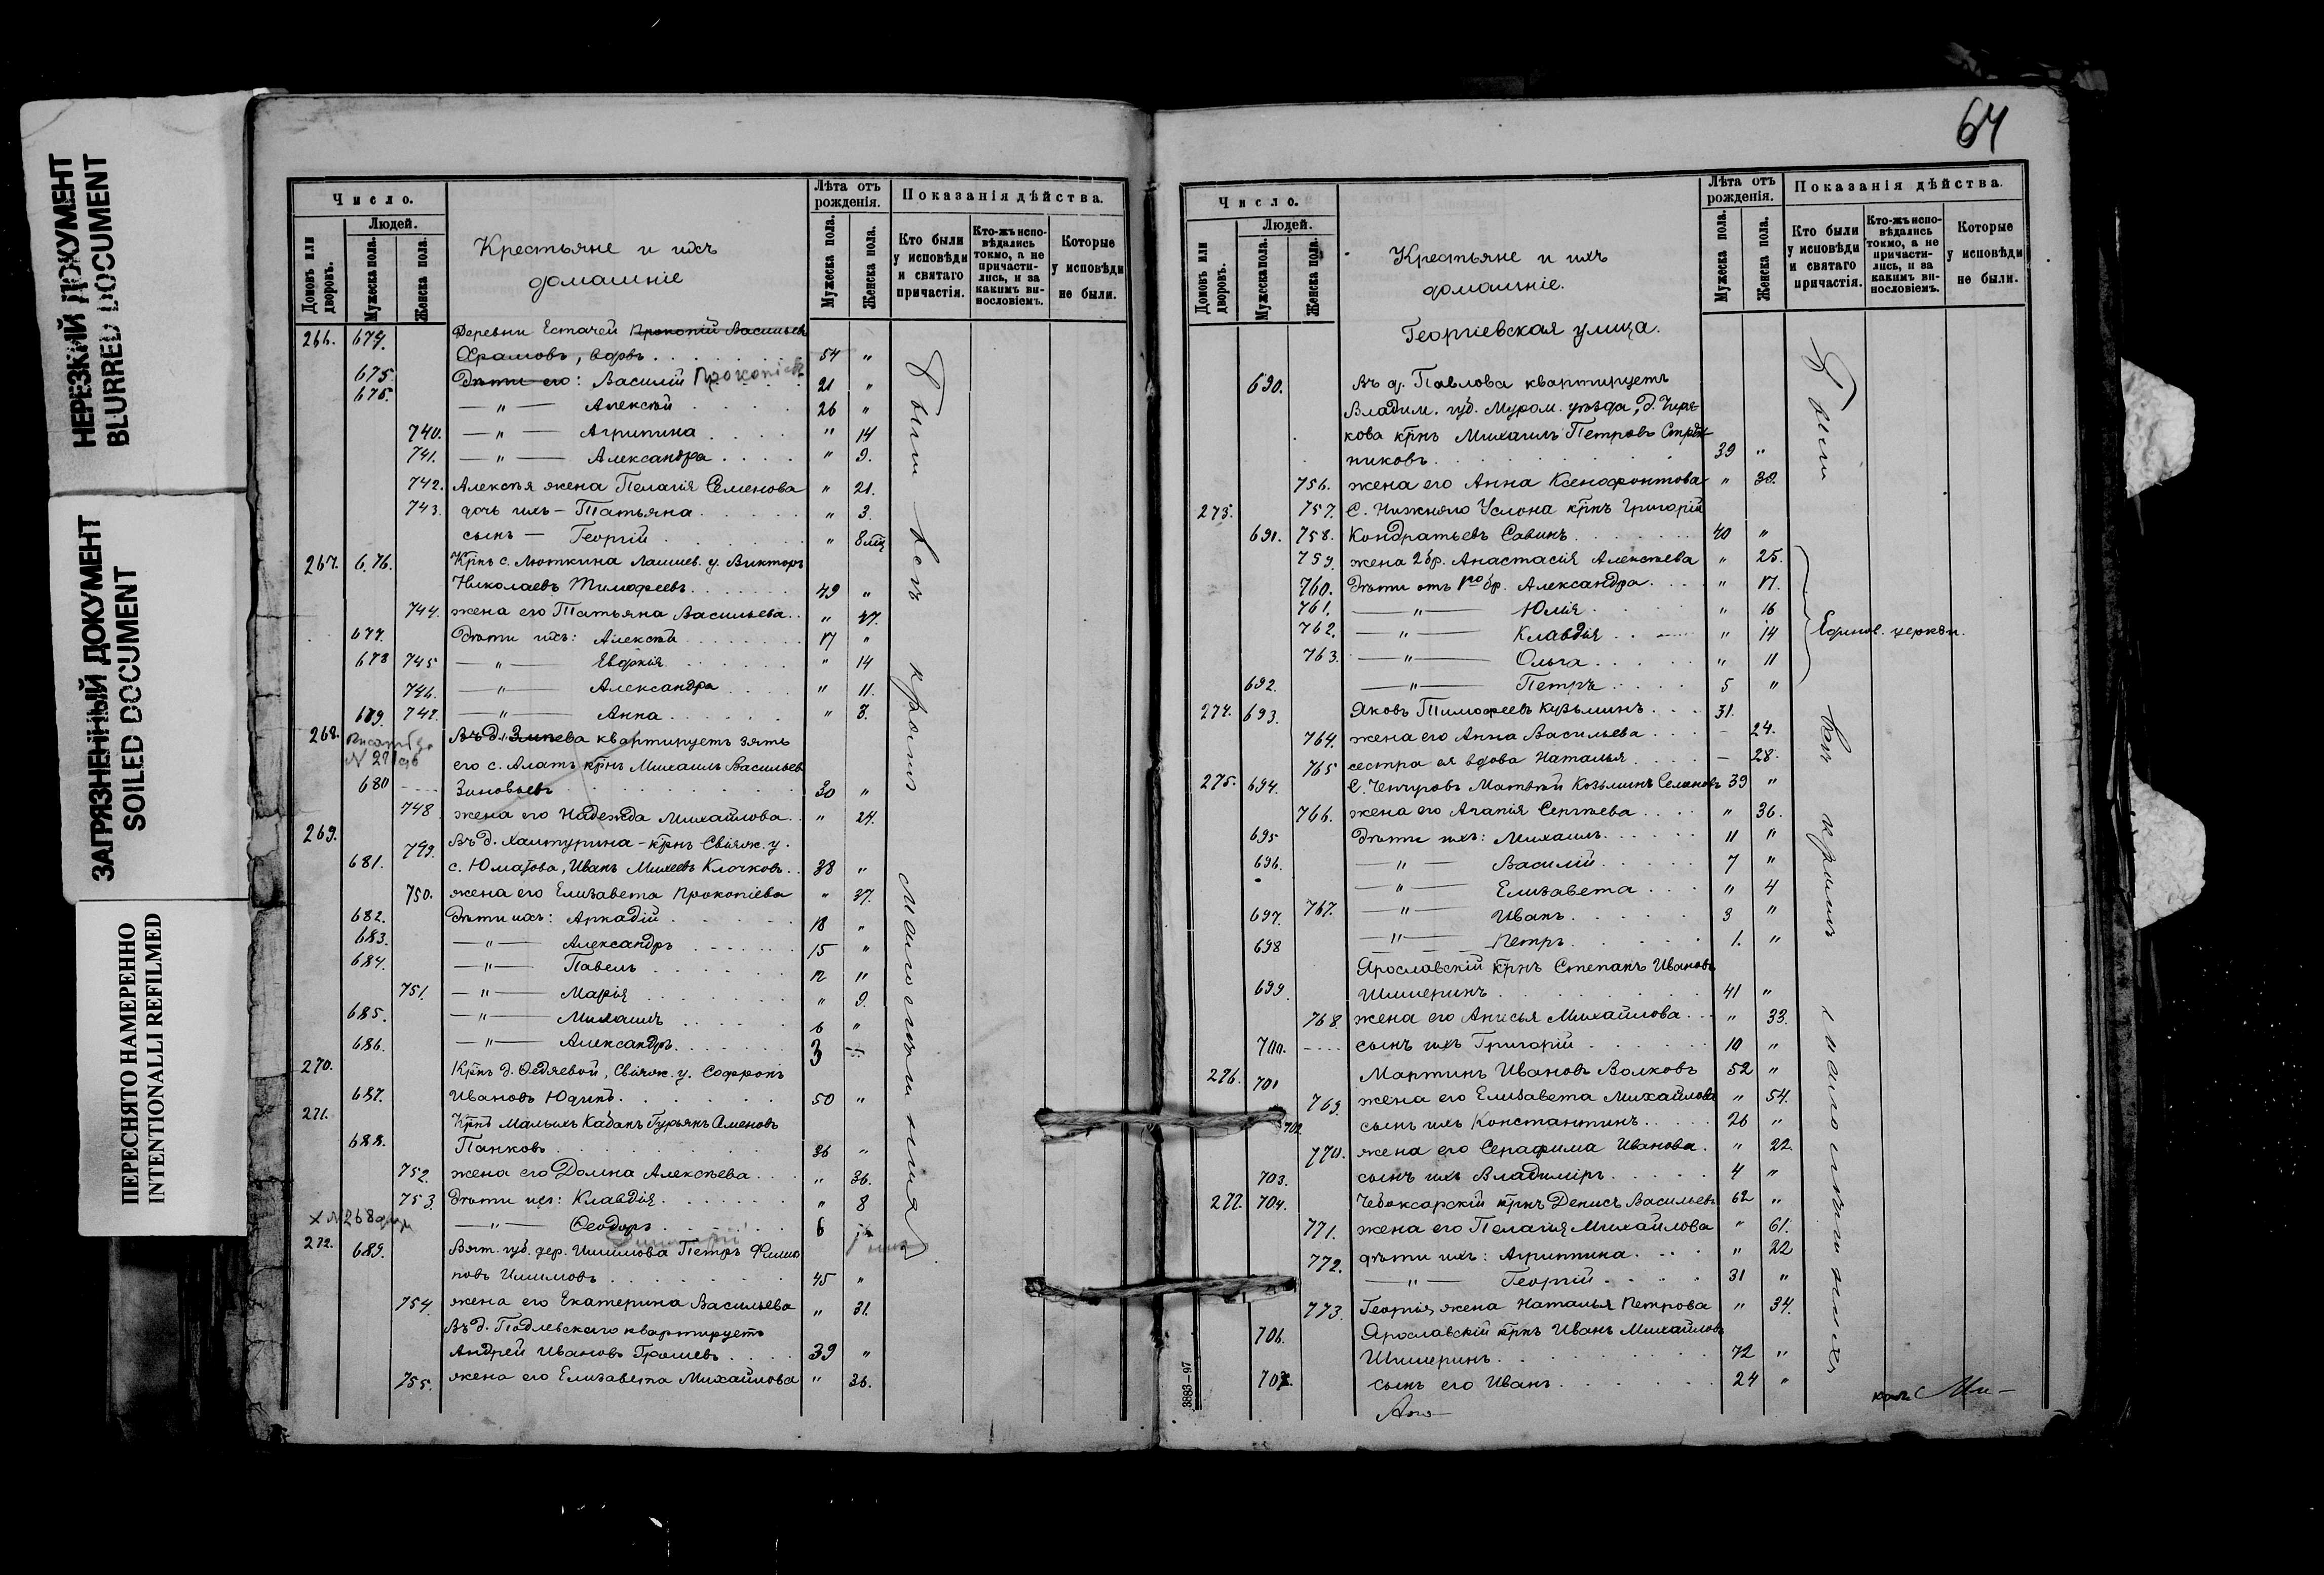 НЕРЕЗКИЙ ДОКУМЕНТ
BLURRED DOCUMENT
ЗАГРЯЗНЕННЫЙ ДОКУМЕНТ
SOILED DOCUMENT
ПЕРЕСНЯТО НАМЕРЕННО
INTENTIONALLI REFILMED
Число.
Людей.
Домовъ или дворовъ.
Мужеска пола.
Женска пола.
Крестьяне и ихъ
домашніе
Лѣта отъ рожденія.
Мужеска пола.
Женска пола.
Показанія дѣйства.
Кто были у исповѣди и святаго причастія.
Кто-жъ исповѣдались токмо, а не причастились, и за какимъ винословіемъ.
Которые у исповѣди не были.
266. 674. Деревни Естачей Прокопій Васильев
Храмовъ, вдовъ 54 "
675. Дѣти его: Василій Прокопіев 21 "
675. — " — Алексѣй 26 "
740. — " — Агрипина " 14
741. — " — Александра " 9.
742. Алексѣя жена Пелагія Семенова " 21.
743. дочь ихъ — Татьяна " 3.
сынъ — Георгій " 8 мц
267. 676. Крнъ с. Люткина Лаишев. у. Викторъ
Николаевъ Тимофеевъ 49 "
744. жена его Татьяна Васильева " 47.
677. Дѣти ихъ: Алексѣй 17 "
678 745 — " — Евдокія " 14
746. — " — Александра " 11.
679. 747. — " — Анна " 3.
268. Въ д. Зинева квартируетъ зять
его с. Алатъ крнъ Михаилъ Васильев
680 Зиновьевъ 30 "
748 жена его Надежда Михайлова " 24.
269. 749. Въ д. Хантурина - крнъ Свіяж. у.
681. с. Юматова, Иванъ Михеевъ Клочковъ 38 "
750. жена его Елизавета Прокопіева " 37.
682. Дѣти ихъ: Аркадій 18 "
683. — " — Александръ 15 "
684. — " — Павелъ 12 "
751. — " — Марія " 9.
685. — " — Михаилъ 6 "
686. — " — Александръ 3
270. Крнъ д. Федяевой, Свіяж. у. Софронъ
687. Ивановъ Юдинъ 50 "
271. Крнъ Малыхъ Кабанъ Гурьянъ Семеновъ
688. Панковъ 36 "
752. жена его Домна Алексѣева " 36.
753. Дѣти ихъ: Клавдія " 8
х № 268 — " — Ѳеодоръ 6
272. 689. Вят. губ. дер. Ишимова Петръ Филип
повъ Ишимовъ 45 "
754. жена его Екатерина Васильева " 31.
Въ д. Подлевскаго квартируетъ
Андрей Ивановъ Грошевъ 39 "
755. жена его Елизавета Михайлова " 36.
Были вси кромѣ малолѣтнихъ
64
Число.
Людей.
Домовъ или дворовъ.
Мужеска пола.
Женска пола.
Крестьяне и ихъ
домашніе.
Лѣта отъ рожденія.
Мужеска пола.
Женска пола.
Показанія дѣйства.
Кто были у исповѣди и святаго причастія.
Кто-жъ исповѣдались токмо, а не причастились, и за какимъ винословіемъ.
Которые у исповѣди не были.
Георгіевская улица.
690. Въ д. Павлова квартируетъ
Владим. губ. Муром. уѣзда, д.
кова крнъ Михаилъ Петровъ
никовъ 39 "
756. жена его Анна Ксенофонтова " 39.
273. 757. С. Нижняго Услона крнъ Григорій
691. 758. Кондратьевъ Савинъ 40 "
759. жена 2 бр. Анастасія Алексѣева " 25.
760. Дѣти отъ 1го бр. Александра " 17.
761. — " — Юлія " 16
762. — " — Клавдія " 14
Единов. церкви.
763. — " — Ольга " 11
692. — " — Петръ 5 "
274. 693. Яковъ Тимофеевъ Кузьминъ 31.
764. жена его Анна Васильева — 24.
765 сестра ея вдова Наталья — 28.
275. 694. С. Ченчуровъ Матвѣй Козьминъ Семеновъ 39 "
766. жена его Агапія Сергѣева " 36.
695 Дѣти ихъ: Михаилъ 11 "
696. — " — Василій 7 "
— " — Елизавета " 4
697. 767. — " — Иванъ 3 "
698 — " — Петръ 1. "
Ярославскій крнъ Степанъ Ивановъ
699. Шишеринъ 41 "
768. жена его Анисья Михайлова " 33.
700. сынъ ихъ Григорій 10 "
276. 701 Мартинъ Ивановъ Волковъ 52 "
769. жена его Елизавета Михайлова " 54.
702 сынъ ихъ Константинъ 26 "
770. жена его Серафима Иванова " 22
703. сынъ ихъ Владиміръ 4 "
277. 704. Чебоксарскій крнъ Денисъ Васильевъ 62 "
771. жена его Пелагія Михайлова " 61.
772. дѣти ихъ: Агриппина " 22
— " — Георгій 31 "
773. Георгія жена Наталья Петрова " 34.
706. Ярославскій крнъ Иванъ Михайловъ
Шишеринъ 72 "
707. сынъ его Иванъ 24 "
Были вси кромѣ малолѣтнихъ
3883—97